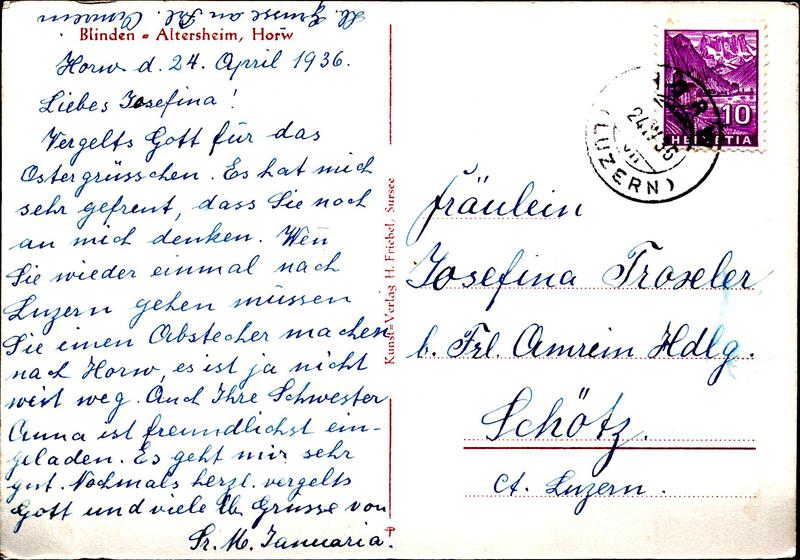 Lb. Grüsse an Frl. Amrein
Blinden = Altersheim, Horw
Horw d. 24. April 1936.
Liebes Josefina!
Vergelts Gott für das
Ostergrüsschen. Es hat mich
sehr gefreut, dass Sie noch
an mich denken. Wen
Sie wieder einmal nach
Luzern gehen müssen
Sie einen Abstecher machen
nach Horw, es ist ja nicht
weit weg. Auch Ihre Schwester
Anna ist freundlichst ein-
geladen. Es geht mir sehr
gut. Nochmals herzl. vergelts
Gott und viele lb. Grüsse von
Sr. M. Januaria.
Kunst=Verlag H. Friebel, Sursee
HORW
24.IV.36
VII
(LUZERN)
10
HELVETIA
Fräulein
Josefina Troxler
b. Frl. Amrein Hdlg.
Schötz.
Ct. Luzern.